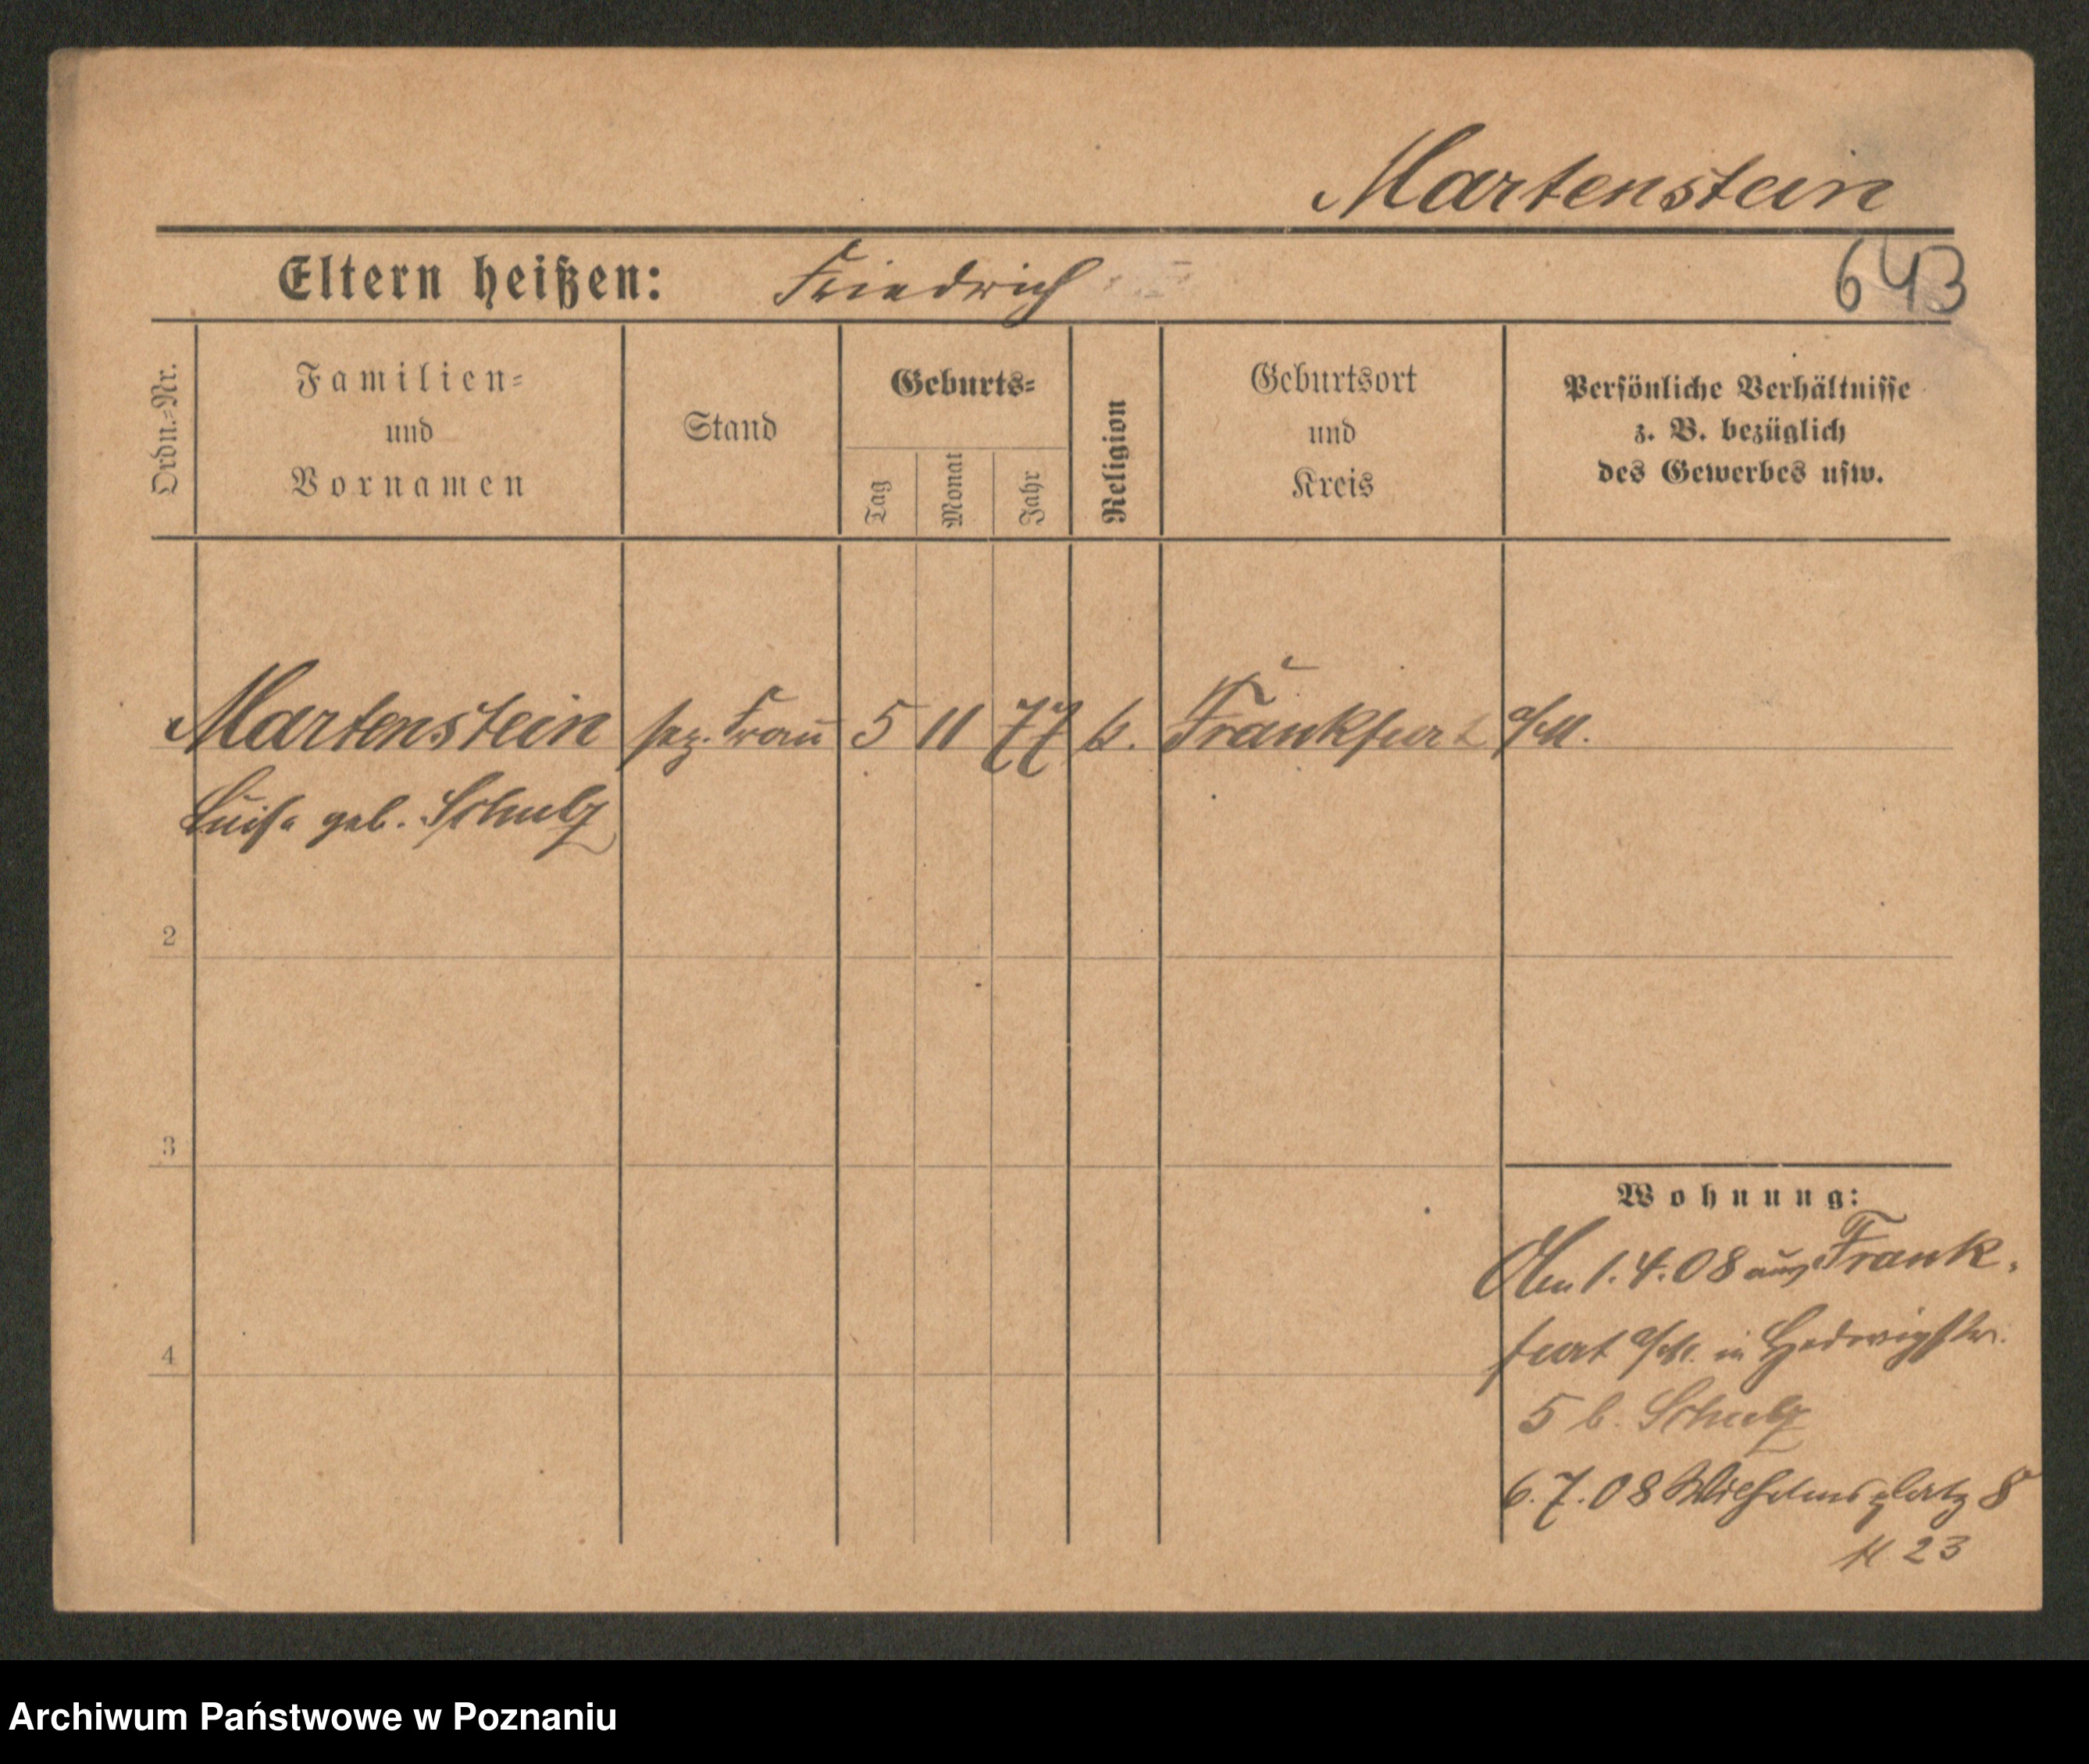 Martenstein
Eltern heißen: Friedrich
643
Ordn.=Nr.
Familien=
und
Vornamen
Stand
Geburts=
Tag
Monat
Jahr
Religion
Geburtsort
und
Kreis
Persönliche Verhältnisse
z. B. bezüglich
des Gewerbes usw.
Martenstein Frau 5 11 77 k. Frankfurt a/M.
Luise geb. Schulz
2
3
4
Wohnung:
1.4.08 aus Frank
furt a/M. in Hedwigstr.
5 b. Schulz
6.7.08 Wilhelmsplatz 8
23
Archiwum Państwowe w Poznaniu